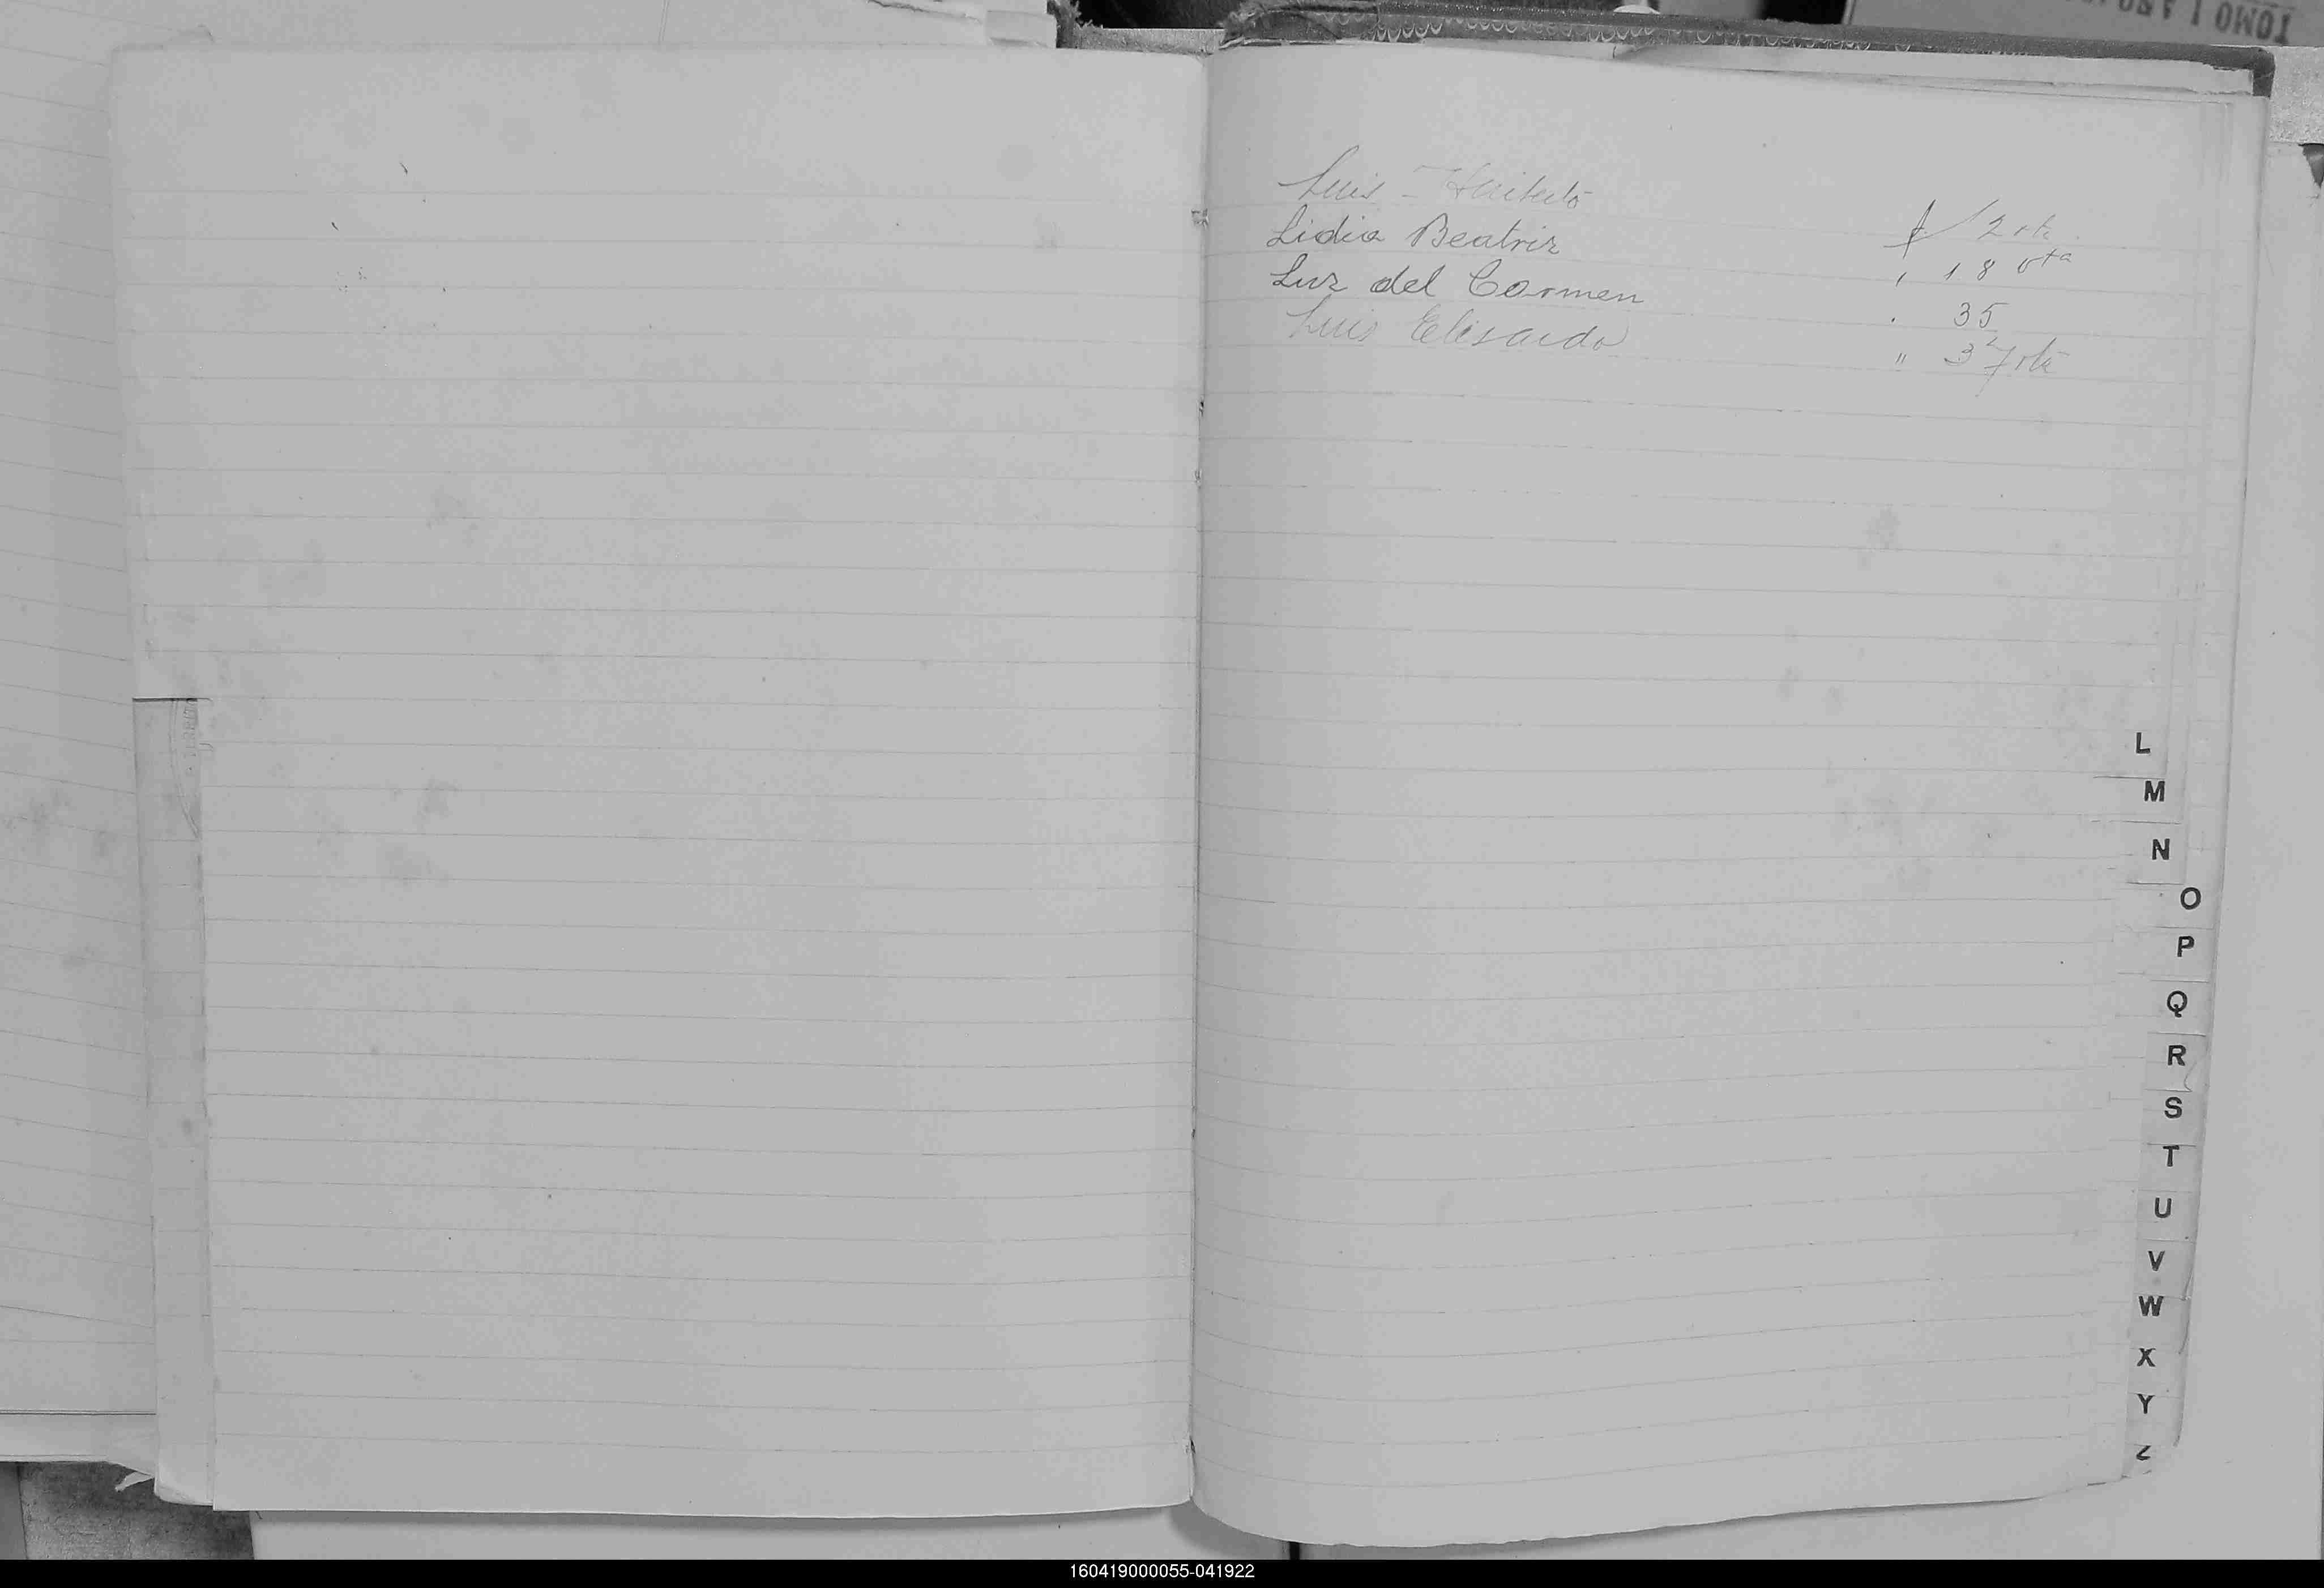 Luis
Lidia Beatriz
Luz del Carmen
Luis Elisardo
f 12 vta
, 18 vta
. 35
" 37 vta
L
M
N
O
P
Q
R
S
T
U
V
W
X
Y
Z
TOMO I AÑO
160419000055-041922